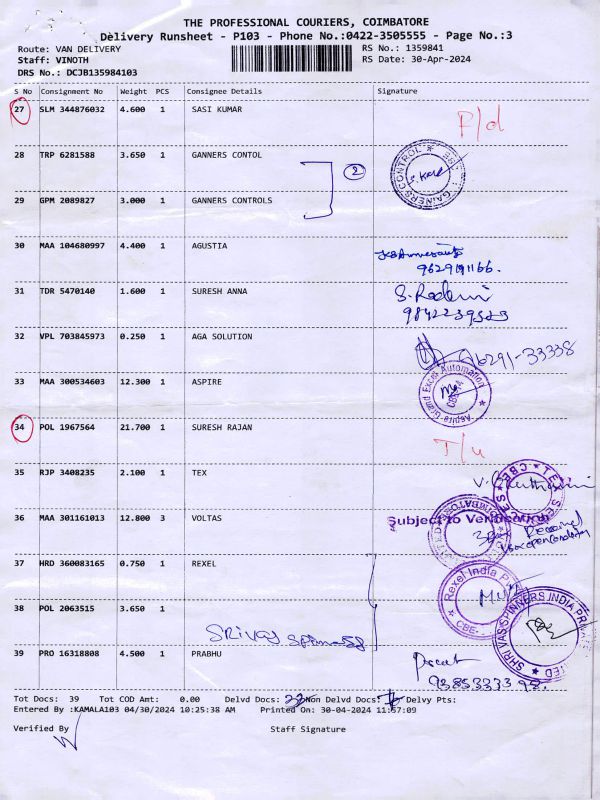 THE PROFESSIONAL COURIERS, COIMBATORE
Delivery Runsheet - P103 - Phone No.:0422-3505555 - Page No.:3
Route: VAN DELIVERY RS No.: 1359841
Staff: VINOTH RS Date: 30-Apr-2024
DRS No.: DCJB135984103
S No Consignment No Weight PCS Consignee Details Signature
27 SLM 344876032 4.600 1 SASI KUMAR
28 TRP 6281588 3.650 1 GANNERS CONTOL
2
GAINERS CONTROL
29 GPM 2089827 3.000 1 GANNERS CONTROLS
30 MAA 104680997 4.400 1 AGUSTIA
31 TDR 5470140 1.600 1 SURESH ANNA
9842239523
32 VPL 703845973 0.250 1 AGA SOLUTION
96291-33338
33 MAA 300534603 12.300 1 ASPIRE
34 POL 1967564 21.700 1 SURESH RAJAN
35 RJP 3408235 2.100 1 TEX
TEX SERVICES CBE
36 MAA 301161013 12.800 3 VOLTAS
Subject to Verification
37 HRD 360083165 0.750 1 REXEL
Rexel India
CBE
38 POL 2063515 3.650 1
SHRI VAS SPINNERS INDIA
39 PRO 16318808 4.500 1 PRABHU
Tot Docs: 39 Tot COD Amt: 0.00 Delvd Docs: Non Delvd Docs: Delvy Pts:
Entered By :KAMALA103 04/30/2024 10:25:38 AM Printed On: 30-04-2024 11:57:09
Verified By Staff Signature